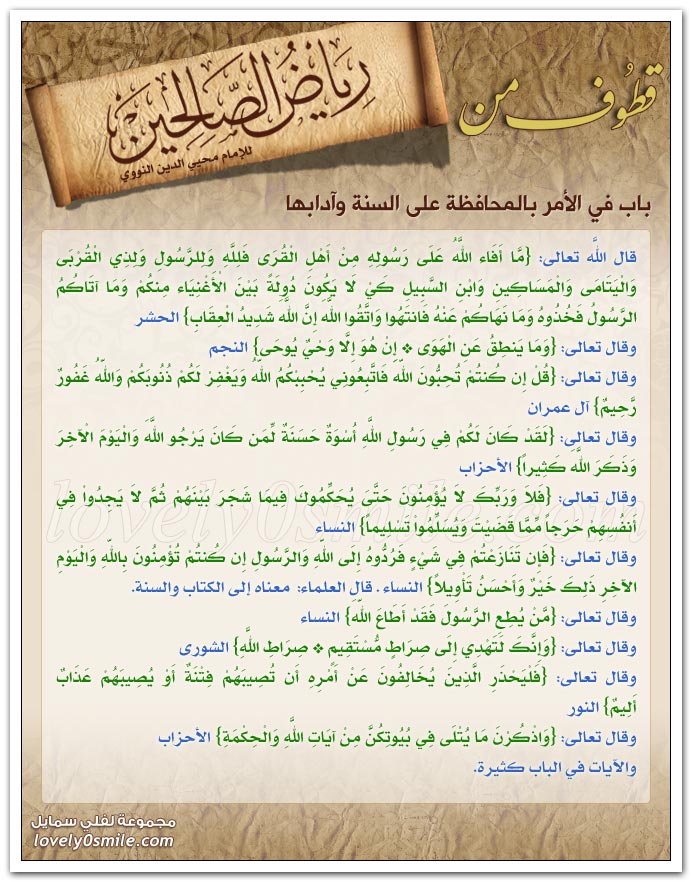 قطوف من
رياض الصالحين
للإمام محيي الدين النووي
باب في الأمر بالمحافظة على السنة وآدابها
قال اللَّه تعالى: {مَّا أَفَاء اللَّهُ عَلَى رَسُولِهِ مِنْ أَهْلِ الْقُرَى فَلِلَّهِ وَلِلرَّسُولِ وَلِذِي الْقُرْبَى
وَالْيَتَامَى وَالْمَسَاكِينِ وَابْنِ السَّبِيلِ كَيْ لَا يَكُونَ دُولَةً بَيْنَ الْأَغْنِيَاء مِنكُمْ وَمَا آتَاكُمُ
الرَّسُولُ فَخُذُوهُ وَمَا نَهَاكُمْ عَنْهُ فَانتَهُوا وَاتَّقُوا اللَّهَ إِنَّ اللَّهَ شَدِيدُ الْعِقَابِ} الحشر
وقال تعالى: {وَمَا يَنطِقُ عَنِ الْهَوَى ❖ إِنْ هُوَ إِلَّا وَحْيٌ يُوحَى} النجم
وقال تعالى: {قُلْ إِن كُنتُمْ تُحِبُّونَ اللّهَ فَاتَّبِعُونِي يُحْبِبْكُمُ اللّهُ وَيَغْفِرْ لَكُمْ ذُنُوبَكُمْ وَاللّهُ غَفُورٌ
رَّحِيمٌ} آل عمران
وقال تعالى: {لَقَدْ كَانَ لَكُمْ فِي رَسُولِ اللَّهِ أُسْوَةٌ حَسَنَةٌ لِّمَن كَانَ يَرْجُو اللَّهَ وَالْيَوْمَ الْآخِرَ
وَذَكَرَ اللَّهَ كَثِيراً} الأحزاب
وقال تعالى: {فَلاَ وَرَبِّكَ لاَ يُؤْمِنُونَ حَتَّىَ يُحَكِّمُوكَ فِيمَا شَجَرَ بَيْنَهُمْ ثُمَّ لاَ يَجِدُواْ فِي
أَنفُسِهِمْ حَرَجاً مِّمَّا قَضَيْتَ وَيُسَلِّمُواْ تَسْلِيماً} النساء
وقال تعالى: {فَإِن تَنَازَعْتُمْ فِي شَيْءٍ فَرُدُّوهُ إِلَى اللّهِ وَالرَّسُولِ إِن كُنتُمْ تُؤْمِنُونَ بِاللّهِ وَالْيَوْمِ
الآخِرِ ذَلِكَ خَيْرٌ وَأَحْسَنُ تَأْوِيلاً} النساء . قال العلماء: معناه إلى الكتاب والسنة.
وقال تعالى: {مَّنْ يُطِعِ الرَّسُولَ فَقَدْ أَطَاعَ اللّهَ} النساء
وقال تعالى: {وَإِنَّكَ لَتَهْدِي إِلَى صِرَاطٍ مُّسْتَقِيمٍ ❖ صِرَاطِ اللَّهِ} الشورى
وقال تعالى: {فَلْيَحْذَرِ الَّذِينَ يُخَالِفُونَ عَنْ أَمْرِهِ أَن تُصِيبَهُمْ فِتْنَةٌ أَوْ يُصِيبَهُمْ عَذَابٌ
أَلِيمٌ} النور
وقال تعالى: {وَاذْكُرْنَ مَا يُتْلَى فِي بُيُوتِكُنَّ مِنْ آيَاتِ اللَّهِ وَالْحِكْمَةِ} الأحزاب
والآيات في الباب كثيرة.
lovely0smile.com
مجموعة لفلي سمايل
lovely0smile.com